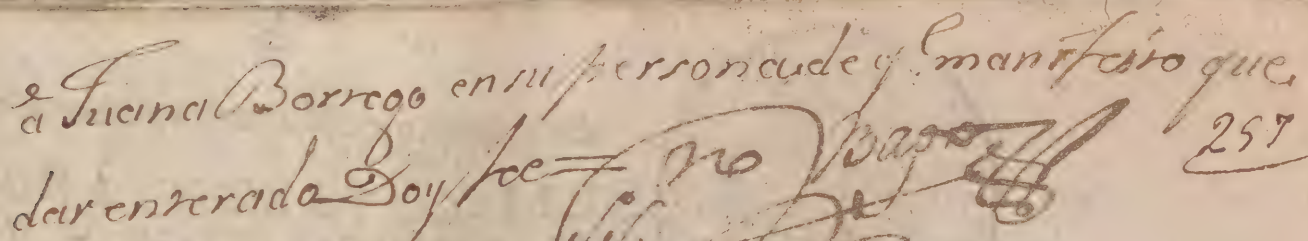 a Juana Borrego en su persona de q.e manifesto que
dar enterado Doy fee=
257